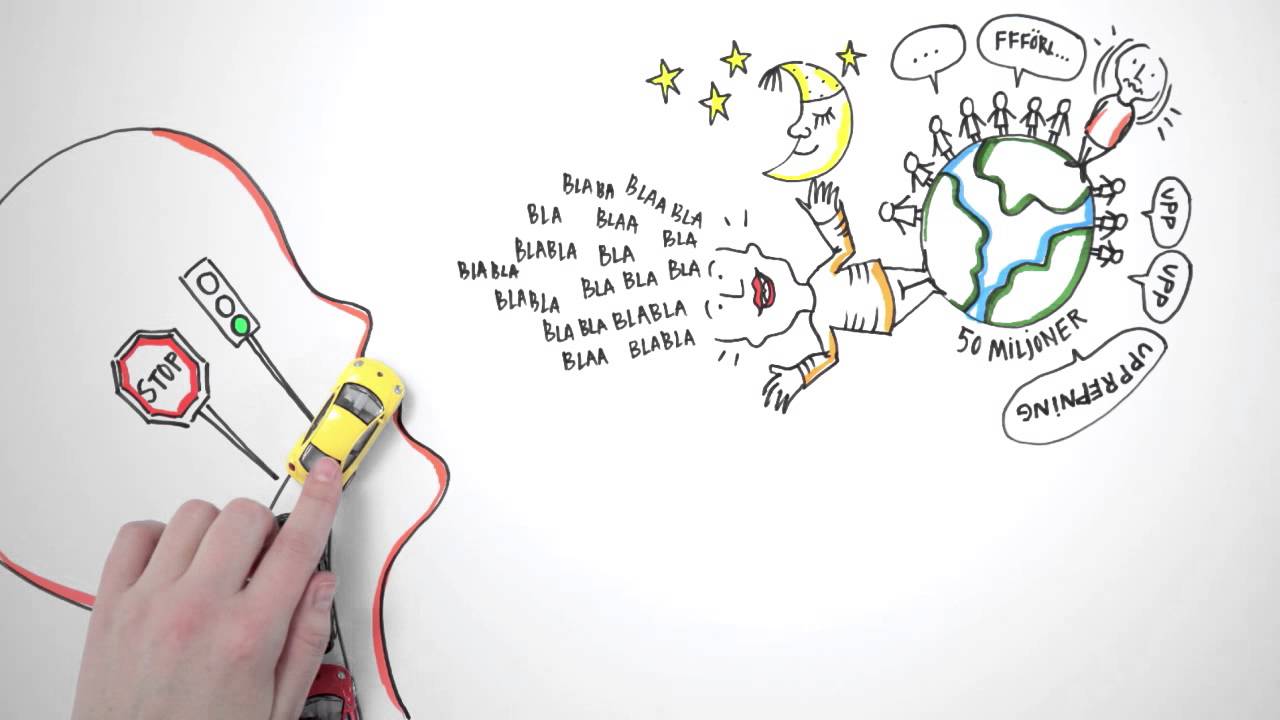 STOP
BLA BA BLAA BLA
BLA BLAA BLA
BLABLA BLA
BLABLA BLA BLA BLA
BLABLA
BLA BLA BLABLA
BLAA BLABLA
...
FFFÖRL...
UPP
UPP
50 MILJONER
UPPREPNING